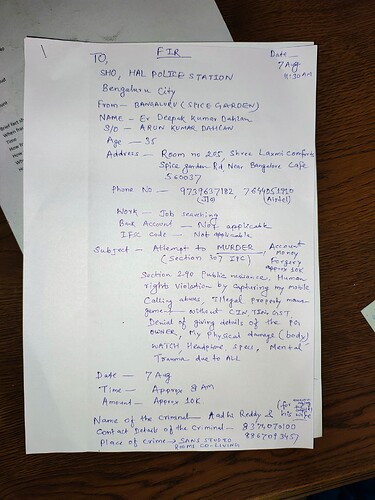 1
FIR
Date -
7 Aug
11:30 AM
TO,
SHO, HAL POLICE STATION
Bengaluru City
From - BANGALURU (SPICE GARDEN)
NAME - Er Deepak Kumar Dahlan
S/O - ARUN KUMAR DAHLAN
Age - 35
Address - Room no 205 Shree Laxmi Comforts
Spice garden Rd Near Bangalore Cafe
560037
Phone No - 9739637182, 7644053910
(JIO) (Airtel)
Work - Job searching
Bank Account - Not applicable
IFSC code - Not applicable
Subject - Attempt to MURDER, Account
(Section 307 IPC) Money
Forgery
approx 10K
Section 290 Public nuisance, Human
rights violation by capturing my mobile
Calling abuses, Illegal property mana
gement - Without CIN, TIN GST
Denial of giving details of the PG
OWNER, My Physical damage (body)
WATCH, Headphone, Specs, Mental
Trauma due to ALL
Date - 7 Aug
Time - Approx 8 AM
Amount - Approx 10K
Name of the Criminal - Aadhi Reddy & his wife
Contact Details of the Criminal - 8374070100
8867093451
Place of crime → SANS STUDIO
ROOMS CO-LIVING